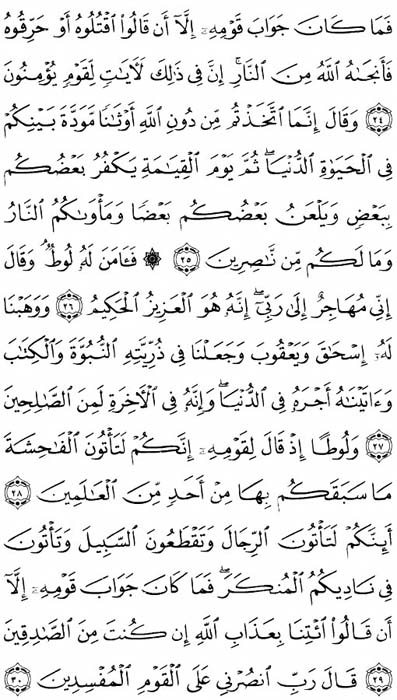 فَمَا كَانَ جَوَابَ قَوْمِهِۦٓ إِلَّآ أَن قَالُوا۟ ٱقْتُلُوهُ أَوْ حَرِّقُوهُ
فَأَنجَىٰهُ ٱللَّهُ مِنَ ٱلنَّارِ ۚ إِنَّ فِى ذَٰلِكَ لَـَٔايَـٰتٍ لِّقَوْمٍ يُؤْمِنُونَ
٢٤ وَقَالَ إِنَّمَا ٱتَّخَذْتُم مِّن دُونِ ٱللَّهِ أَوْثَـٰنًا مَّوَدَّةَ بَيْنِكُمْ
فِى ٱلْحَيَوٰةِ ٱلدُّنْيَا ۖ ثُمَّ يَوْمَ ٱلْقِيَـٰمَةِ يَكْفُرُ بَعْضُكُم
بِبَعْضٍ وَيَلْعَنُ بَعْضُكُم بَعْضًا وَمَأْوَىٰكُمُ ٱلنَّارُ
وَمَا لَكُم مِّن نَّـٰصِرِينَ ٢٥ ۞ فَـَٔامَنَ لَهُۥ لُوطٌ ۘ وَقَالَ
إِنِّى مُهَاجِرٌ إِلَىٰ رَبِّىٓ ۖ إِنَّهُۥ هُوَ ٱلْعَزِيزُ ٱلْحَكِيمُ ٢٦ وَوَهَبْنَا
لَهُۥٓ إِسْحَـٰقَ وَيَعْقُوبَ وَجَعَلْنَا فِى ذُرِّيَّتِهِ ٱلنُّبُوَّةَ وَٱلْكِتَـٰبَ
وَءَاتَيْنَـٰهُ أَجْرَهُۥ فِى ٱلدُّنْيَا ۖ وَإِنَّهُۥ فِى ٱلْـَٔاخِرَةِ لَمِنَ ٱلصَّـٰلِحِينَ
٢٧ وَلُوطًا إِذْ قَالَ لِقَوْمِهِۦٓ إِنَّكُمْ لَتَأْتُونَ ٱلْفَـٰحِشَةَ
مَا سَبَقَكُم بِهَا مِنْ أَحَدٍ مِّنَ ٱلْعَـٰلَمِينَ ٢٨
أَئِنَّكُمْ لَتَأْتُونَ ٱلرِّجَالَ وَتَقْطَعُونَ ٱلسَّبِيلَ وَتَأْتُونَ
فِى نَادِيكُمُ ٱلْمُنكَرَ ۖ فَمَا كَانَ جَوَابَ قَوْمِهِۦٓ إِلَّآ
أَن قَالُوا۟ ٱئْتِنَا بِعَذَابِ ٱللَّهِ إِن كُنتَ مِنَ ٱلصَّـٰدِقِينَ
٢٩ قَالَ رَبِّ ٱنصُرْنِى عَلَى ٱلْقَوْمِ ٱلْمُفْسِدِينَ ٣٠